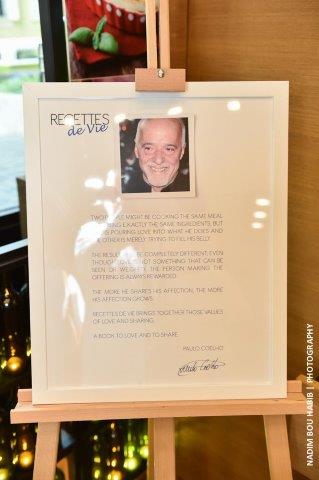 RECETTES
de Vie
TWO PEOPLE MIGHT BE COOKING THE SAME MEAL
USING EXACTLY THE SAME INGREDIENTS, BUT
ONE IS POURING LOVE INTO WHAT HE DOES AND
THE OTHER IS MERELY 'TRYING TO FILL HIS BELLY'.
THE RESULT WILL BE COMPLETELY DIFFERENT, EVEN
THOUGH LOVE IS NOT SOMETHING THAT CAN BE
SEEN OR WEIGHED. THE PERSON MAKING THE
OFFERING IS ALWAYS REWARDED.
THE MORE HE SHARES HIS AFFECTION, THE MORE
HIS AFFECTION GROWS.
RECETTES DE VIE BRINGS TOGETHER THOSE VALUES
OF LOVE AND SHARING.
A BOOK TO LOVE AND TO SHARE.
PAULO COELHO
Paulo Coelho
NADIM BOU HABIB | PHOTOGRAPHY